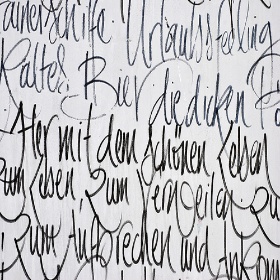 Urlaubsfeeling
Kaltes Bier die dicken
Her mit dem schönen Leben
zum Lesen zum Verweilen
zum Aufbrechen und